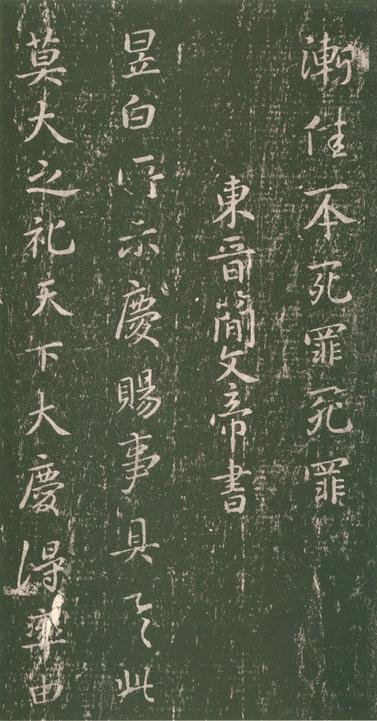 漸佳不一本死罪死罪
東晉簡文帝書
昱白所示慶賜事具之此
莫大之祀天下大慶得率由